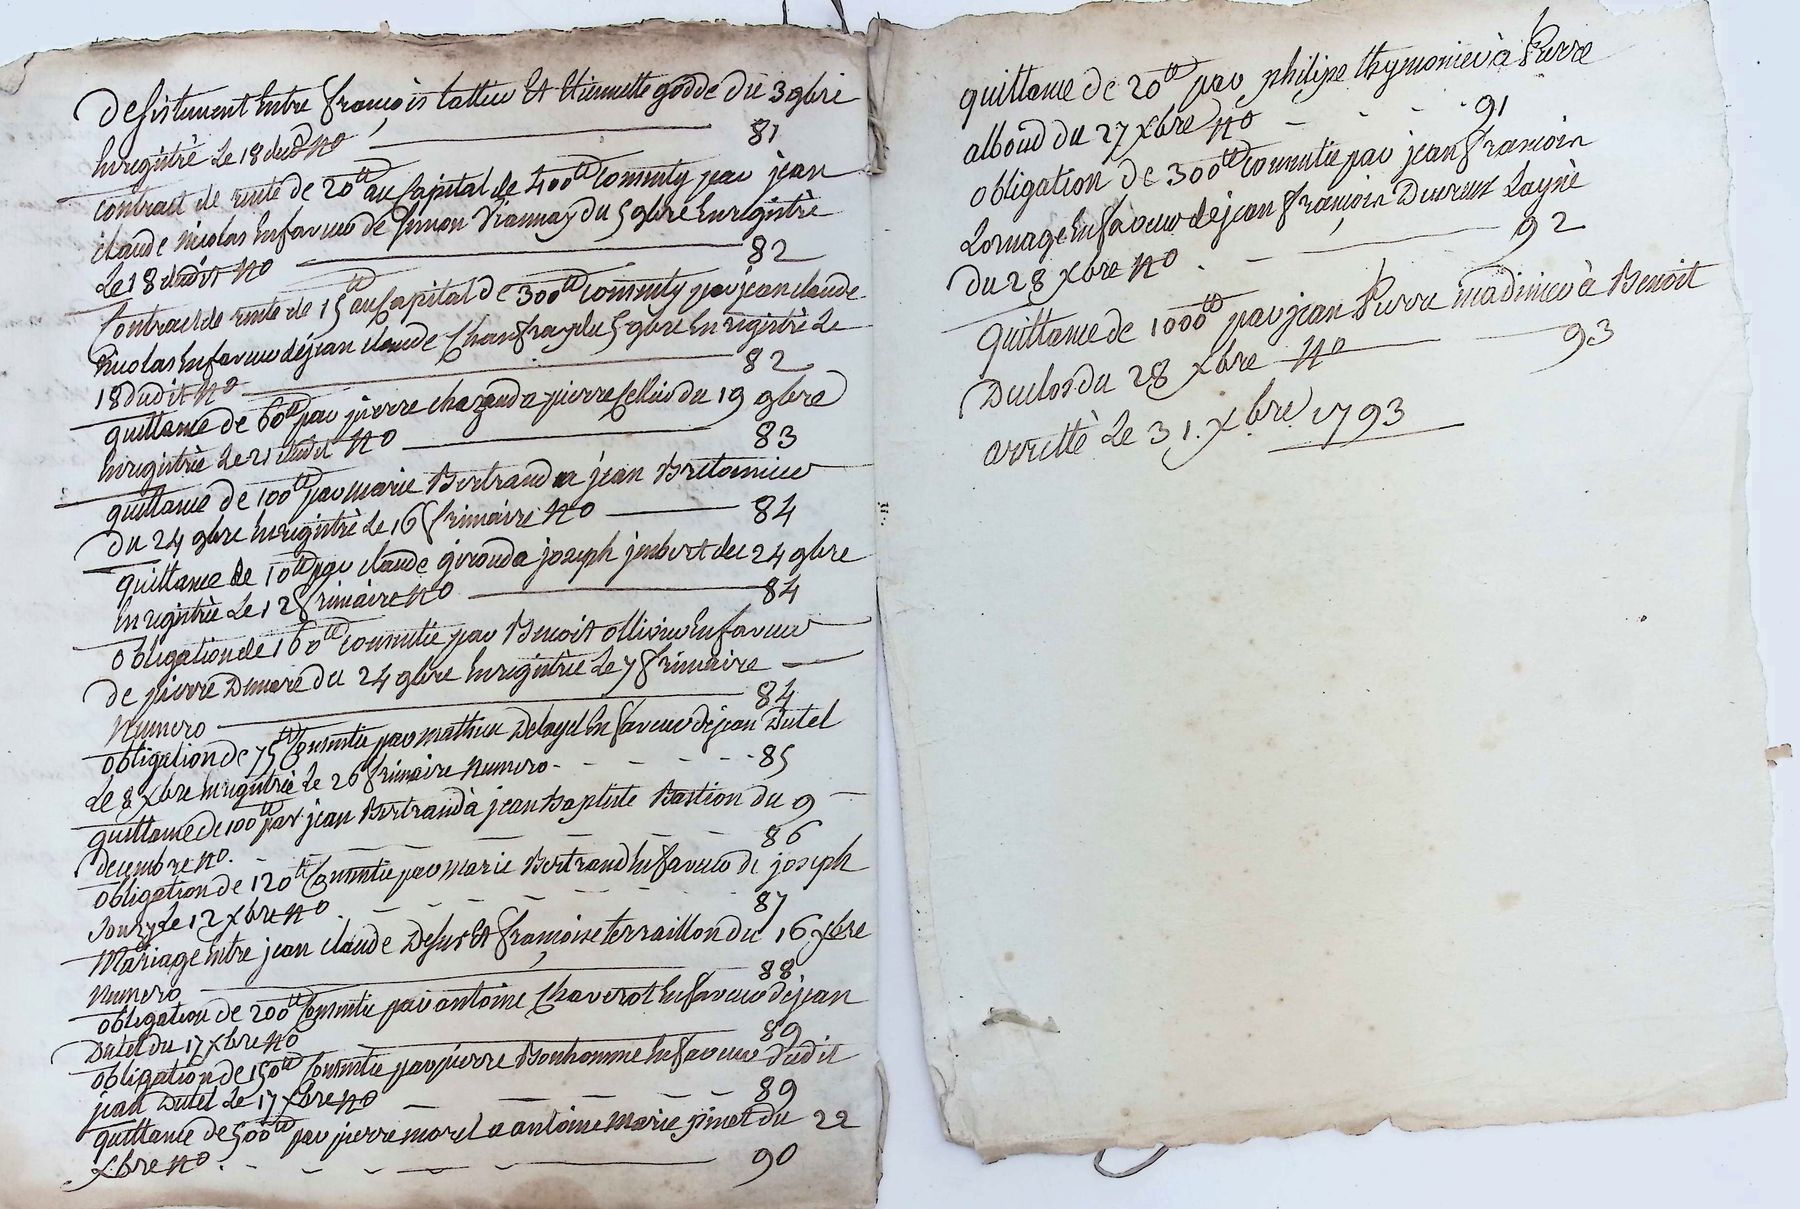 Desistement Entre françois tattier Et Etiennette godde du 3 9bre
Enregistré Le 18 dud. No 81
Contract de rente de 20tt au Capital de 400tt Consenty par jean
claude Nicolas En faveur de Simon Viannay du 5 9bre Enregistré
Le 18 dudit No 82
Contract de rente de 15tt au Capital de 300tt Consenty par jean claude
Nicolas En faveur de jean claude Chanfray du 5 9bre Enregistré Le
18 dudit No 82
quittance de 60tt par pierre chazaud a pierre Cellier du 19 9bre
Enregistrée Le 21 dudit No 83
quittance de 100tt par marie Bertrand a jean Bretonnier
du 24 9bre Enregistré Le 16 frimaire No 84
quittance de 10tt par claude giroud a joseph jmbert du 24 9bre
Enregistrée Le 12 frimaire No 84
obligation de 160tt Consentie par Benoit ollivier En faveur
de pierre Dumoré du 24 9bre Enregistrée Le 7 frimaire
Numero 84
obligation de 75tt Consentie par mathieu Delayel En faveur de jean Dutel
Le 8 Xbre Enregistrée Le 26 frimaire Numero 85
quittance de 100tt par jean Bertrand à jean Baptiste Bastion du 9
decembre No. 86
obligation de 120tt Consentie par marie Bertrand En faveur de joseph
Le 12 Xbre No 87
Mariage Entre jean claude Et françoise terraillon du 16 Xbre
Numero 88
obligation de 200tt Consentie par antoine Chaverot En faveur de jean
Dutel du 17 Xbre No 89
obligation de 150tt Consentie par pierre Bonhomme En faveur dudit
jean Dutel Le 17 Xbre No 89
quittance de 500tt par pierre morel a antoine marie pinet du 22
Xbre No 90
quittance de 20tt par philipe thymonier à Pierre
alboud du 27 Xbre No 91
obligation de 300tt Consentie par jean françois
Lornage En faveur de jean françois Ducreux Layné
du 28 Xbre No 92
quittance de 1000tt par jean Pierre madinier à Benoit
Duclos du 28 Xbre No 93
arretté Le 31. Xbre 1793